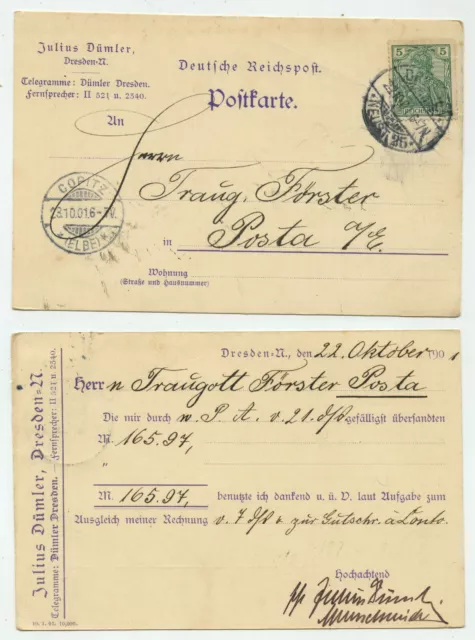 Julius Dümler,
Dresden-N.
Telegramme: Dümler Dresden.
Fernsprecher: II 521 u. 2540.
Deutsche Reichspost.
Postkarte.
5
An
Herrn
Traug. Förster
in Posta a/E.
COPITZ
23.10.01.6-7V.
(ELBE)
Wohnung
(Straße und Hausnummer)
Julius Dümler, Dresden-N.
Telegramme: Dümler Dresden. — Fernsprecher: II 521 u. 2540.
Dresden-N., den 22. Oktober 1901
Herrn Traugott Förster Posta
Die mir durch w. P. A. v. 21. ds/ gefälligst übersandten
M. 165.97,
"
M. 165.97, benutzte ich dankend u. ü. V. laut Aufgabe zum
Ausgleich meiner Rechnung v. 7 ds/ & zur Gutschr. à Conto.
Hochachtend
ppa Julius Dümler